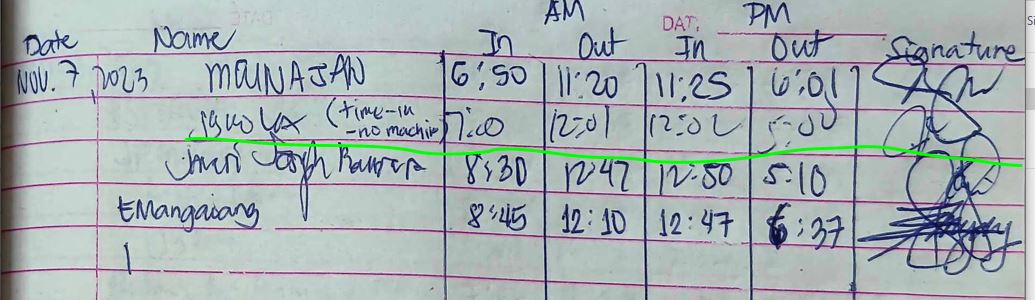 AM DAT. PM
Date Name In Out In Out Signature
NOV. 7, 2023 6:50 11:20 11:25 6:01
(time-in -no machin) 7:00 12:01 12:02 5:00
Joseph 8:30 12:47 12:50 5:10
EMangaiang 8:45 12:10 12:47 6:37